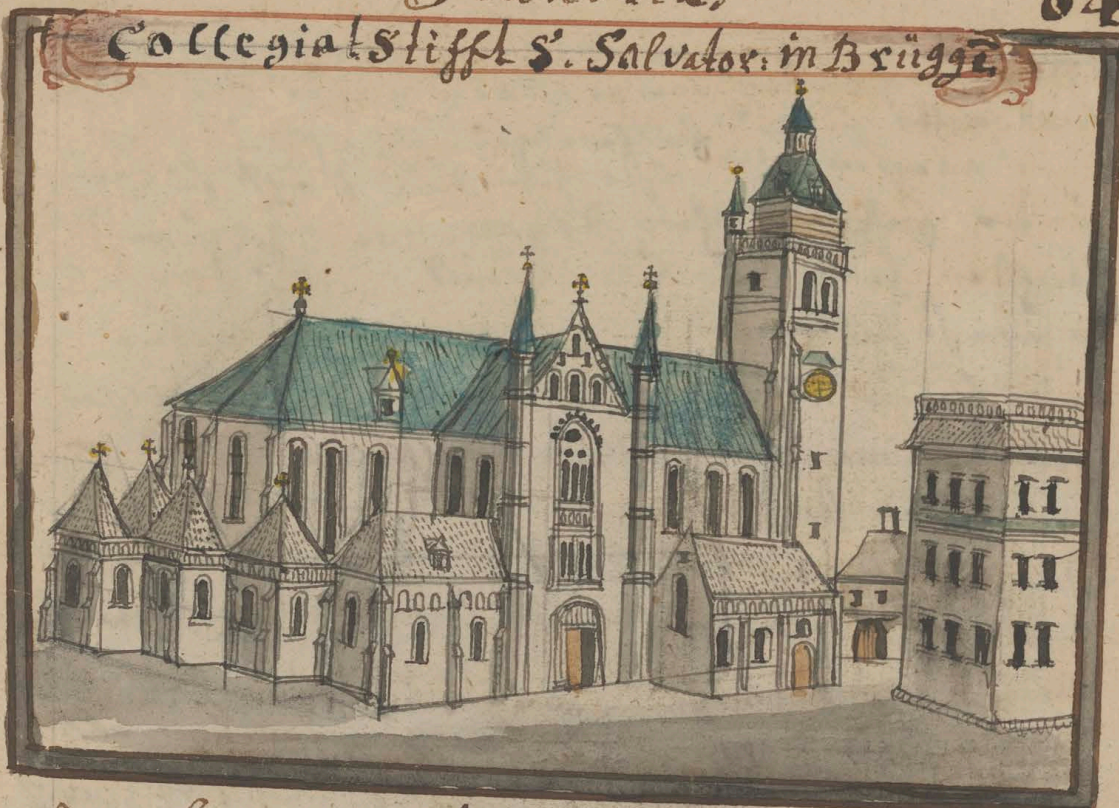 Collegial Stifft S. Salvator: in Brügge